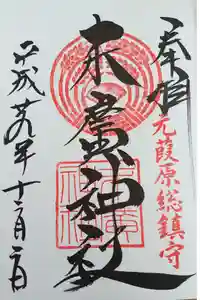 奉拝
元葭原総鎮守
末廣神社
平成廿九年十二月二日